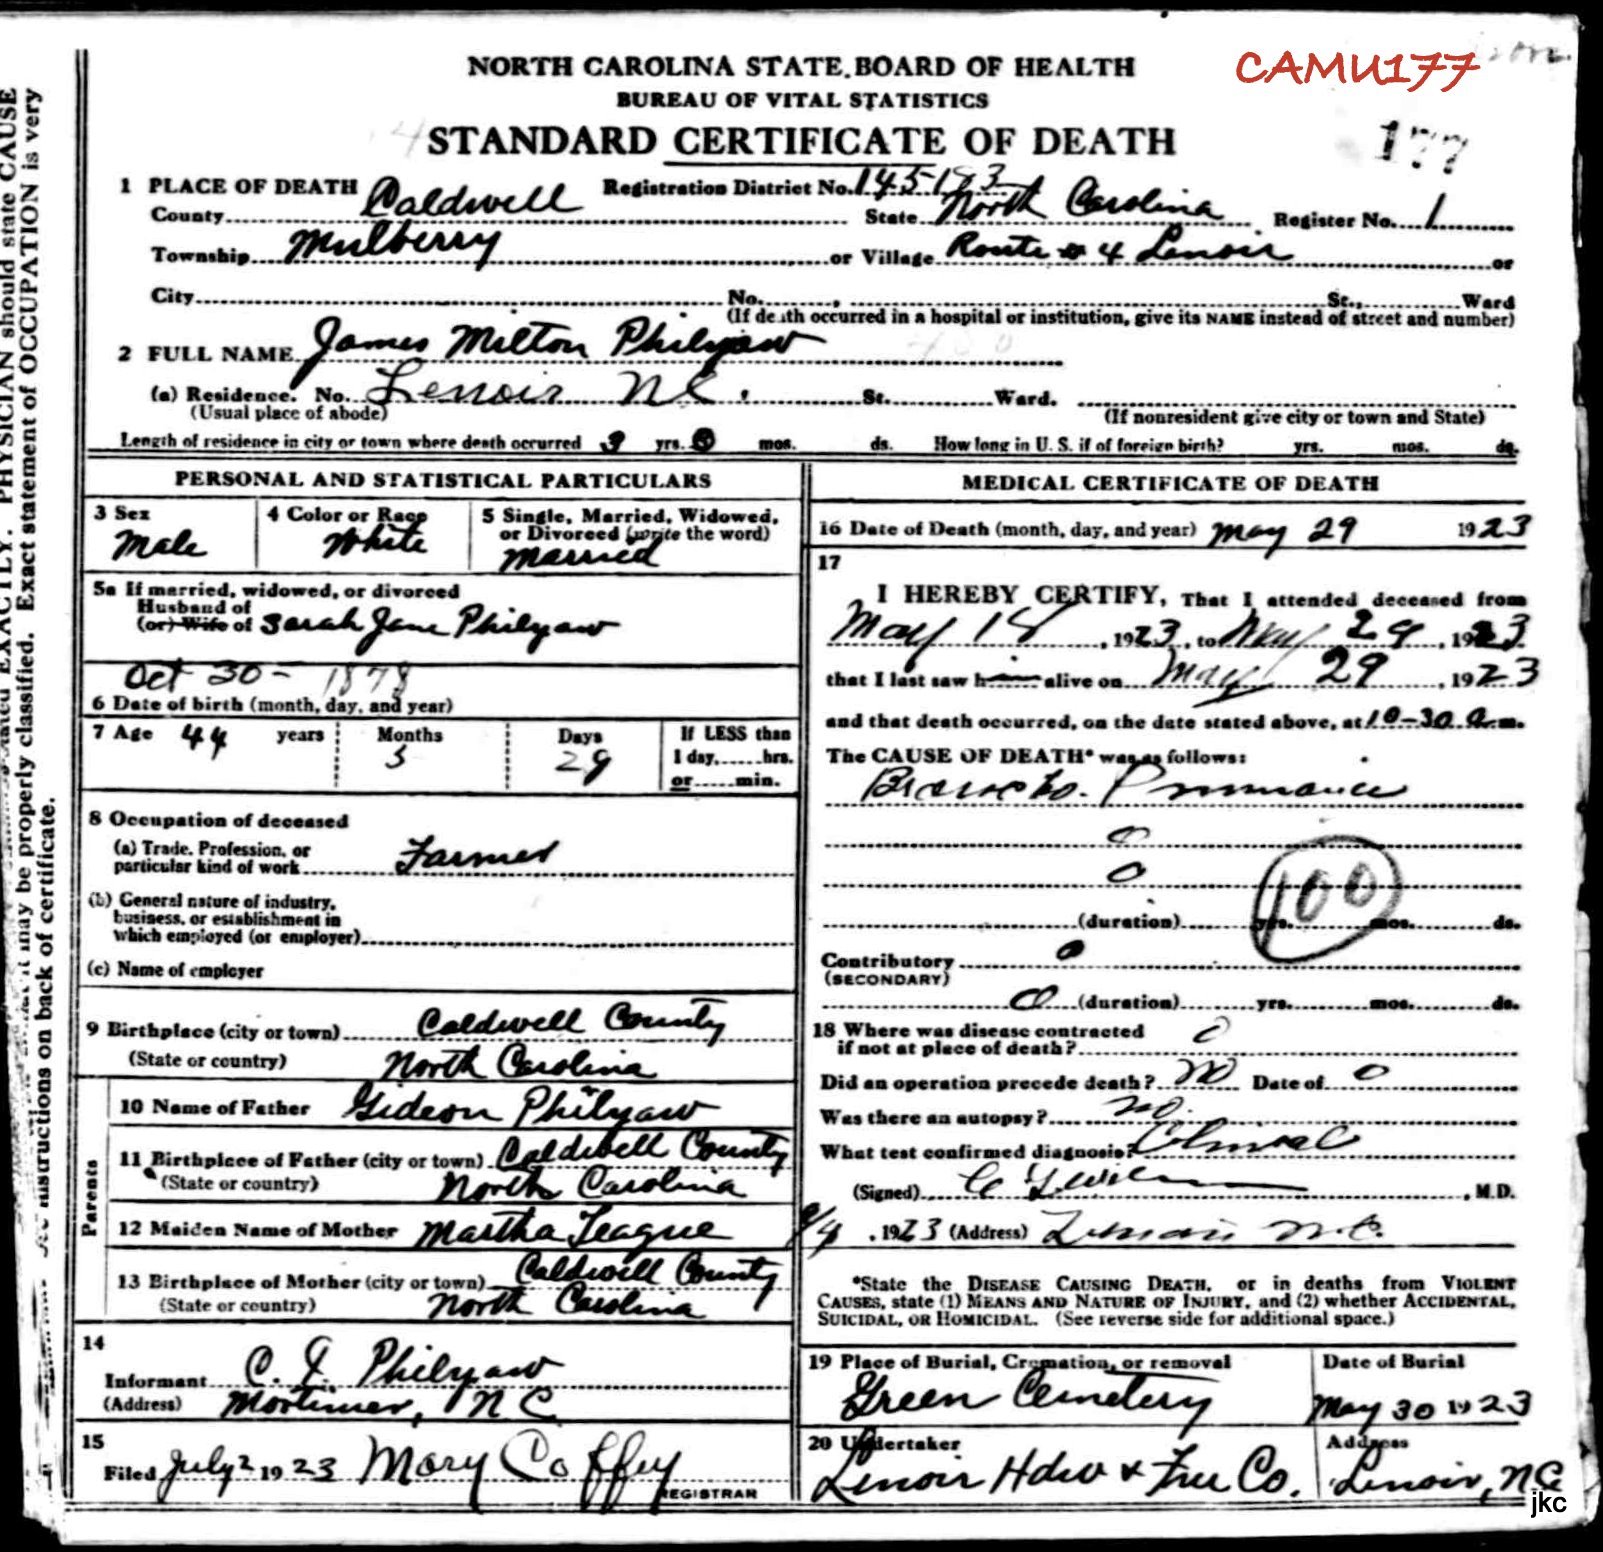 CAMU177
NORTH CAROLINA STATE BOARD OF HEALTH
BUREAU OF VITAL STATISTICS
STANDARD CERTIFICATE OF DEATH
177
1 PLACE OF DEATH Registration District No. 145183
County Caldwell State North Carolina Register No. 1
Township Mulberry or Village Route # 4 Lenoir or
City No. , St., Ward
(If death occurred in a hospital or institution, give its NAME instead of street and number)
2 FULL NAME James Milton Philyaw
(a) Residence. No. Lenoir NC. St. Ward.
(Usual place of abode) (If nonresident give city or town and State)
Length of residence in city or town where death occurred 3 yrs. mos. ds. How long in U. S. if of foreign birth? yrs. mos. ds.
PERSONAL AND STATISTICAL PARTICULARS
3 Sex Male
4 Color or Race White
5 Single, Married, Widowed, or Divorced (write the word)
Married
5a If married, widowed, or divorced
Husband of
(or) Wife of Sarah Jane Philyaw
Oct 30 - 1878
6 Date of birth (month, day, and year)
7 Age 44 years Months Days 29 If LESS than
1 day, hrs.
or min.
8 Occupation of deceased
(a) Trade, Profession, or
particular kind of work Farmer
(b) General nature of industry,
business, or establishment in
which employed (or employer)
(c) Name of employer
9 Birthplace (city or town) Caldwell County
(State or country) North Carolina
Parents
10 Name of Father Gideon Philyaw
11 Birthplace of Father (city or town) Caldwell County
(State or country) North Carolina
12 Maiden Name of Mother Martha Teague
13 Birthplace of Mother (city or town) Caldwell County
(State or country) North Carolina
14
Informant C. F. Philyaw
(Address) Mortimer, NC
15
Filed July 2 1923 Mary Coffey
REGISTRAR
MEDICAL CERTIFICATE OF DEATH
16 Date of Death (month, day, and year) May 29 1923
17
I HEREBY CERTIFY, That I attended deceased from
May 18, 1923, to May 29, 1923
that I last saw him alive on May 29, 1923
and that death occurred, on the date stated above, at 10-30 a.m.
The CAUSE OF DEATH* was as follows:
Broncho. Pnumonia
0
0
100
(duration) yrs. mos. ds.
Contributory 0
(SECONDARY)
0 (duration) yrs. mos. ds.
18 Where was disease contracted
if not at place of death? 0
Did an operation precede death? No Date of 0
Was there an autopsy? no.
What test confirmed diagnosis? Clinical
(Signed) , M.D.
, 1923 (Address) Lenoir N.C.
*State the DISEASE CAUSING DEATH, or in deaths from VIOLENT
CAUSES, state (1) MEANS AND NATURE OF INJURY, and (2) whether ACCIDENTAL,
SUICIDAL, OR HOMICIDAL. (See reverse side for additional space.)
19 Place of Burial, Cremation, or removal Date of Burial
Green Cemetery May 30 1923
20 Undertaker Address
Lenoir Hdw & Fur Co. Lenoir, NC
jkc
PHYSICIAN should state CAUSE
Exact statement of OCCUPATION is very
may be properly classified.
instructions on back of certificate.